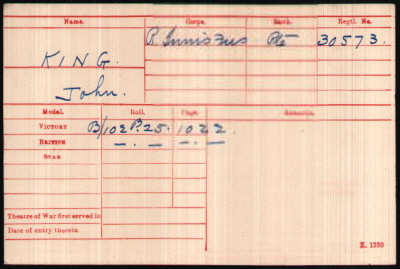 Name. Corps. Rank. Regtl. No.
KING. R. Innis Fus Pte 30573.
John.
Medal. Roll. Page. Remarks.
VICTORY B/102 B.25. 1022.
BRITISH —„— —„—
STAR
Theatre of War first served in
Date of entry therein
K. 1380